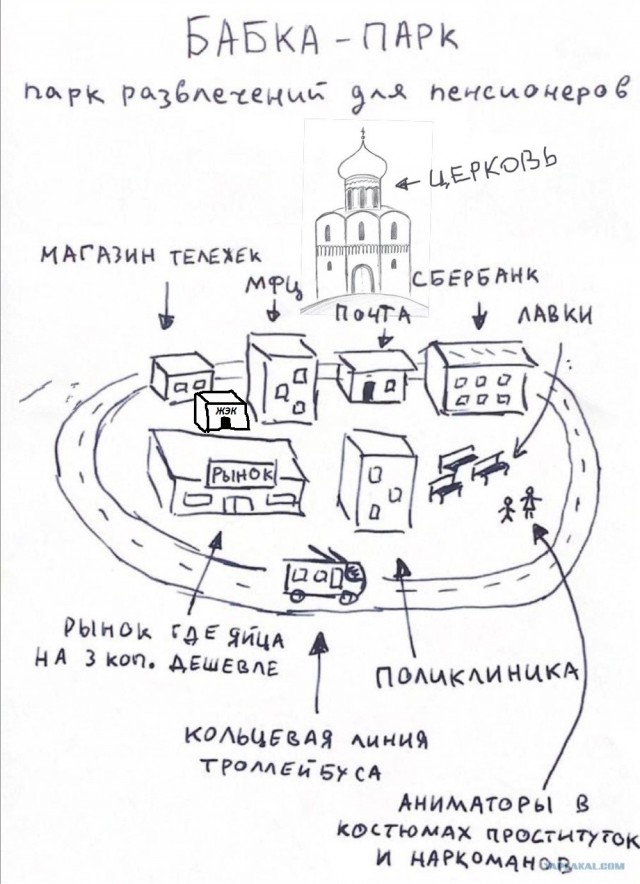 БАБКА - ПАРК
парк развлечений для пенсионеров
← ЦЕРКОВЬ
МАГАЗИН ТЕЛЕЖЕК
МФЦ
СБЕРБАНК
ПОЧТА
ЛАВКИ
ЖЭК
РЫНОК
РЫНОК ГДЕ ЯЙЦА
НА 3 КОП. ДЕШЕВЛЕ
ПОЛИКЛИНИКА
КОЛЬЦЕВАЯ ЛИНИЯ
ТРОЛЛЕЙБУСА
АНИМАТОРЫ В
КОСТЮМАХ ПРОСТИТУТОК
И НАРКОМАНОВ
YAPLAKAL.COM